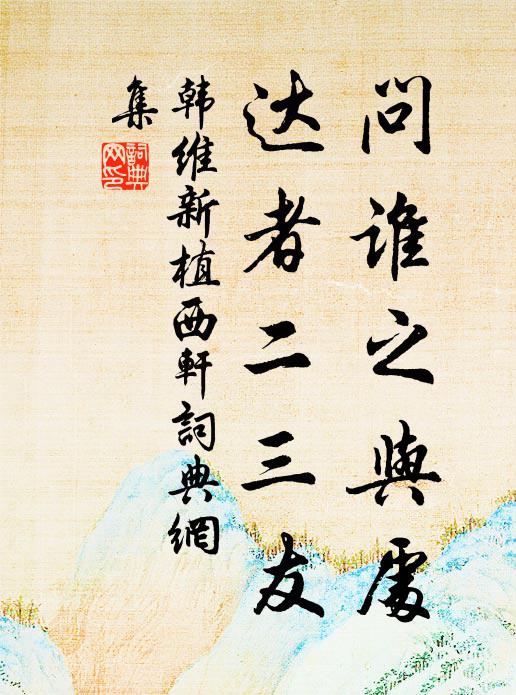 问谁之与處
达者二三友
韩維新植西軒詞典網
集
詞典
网印